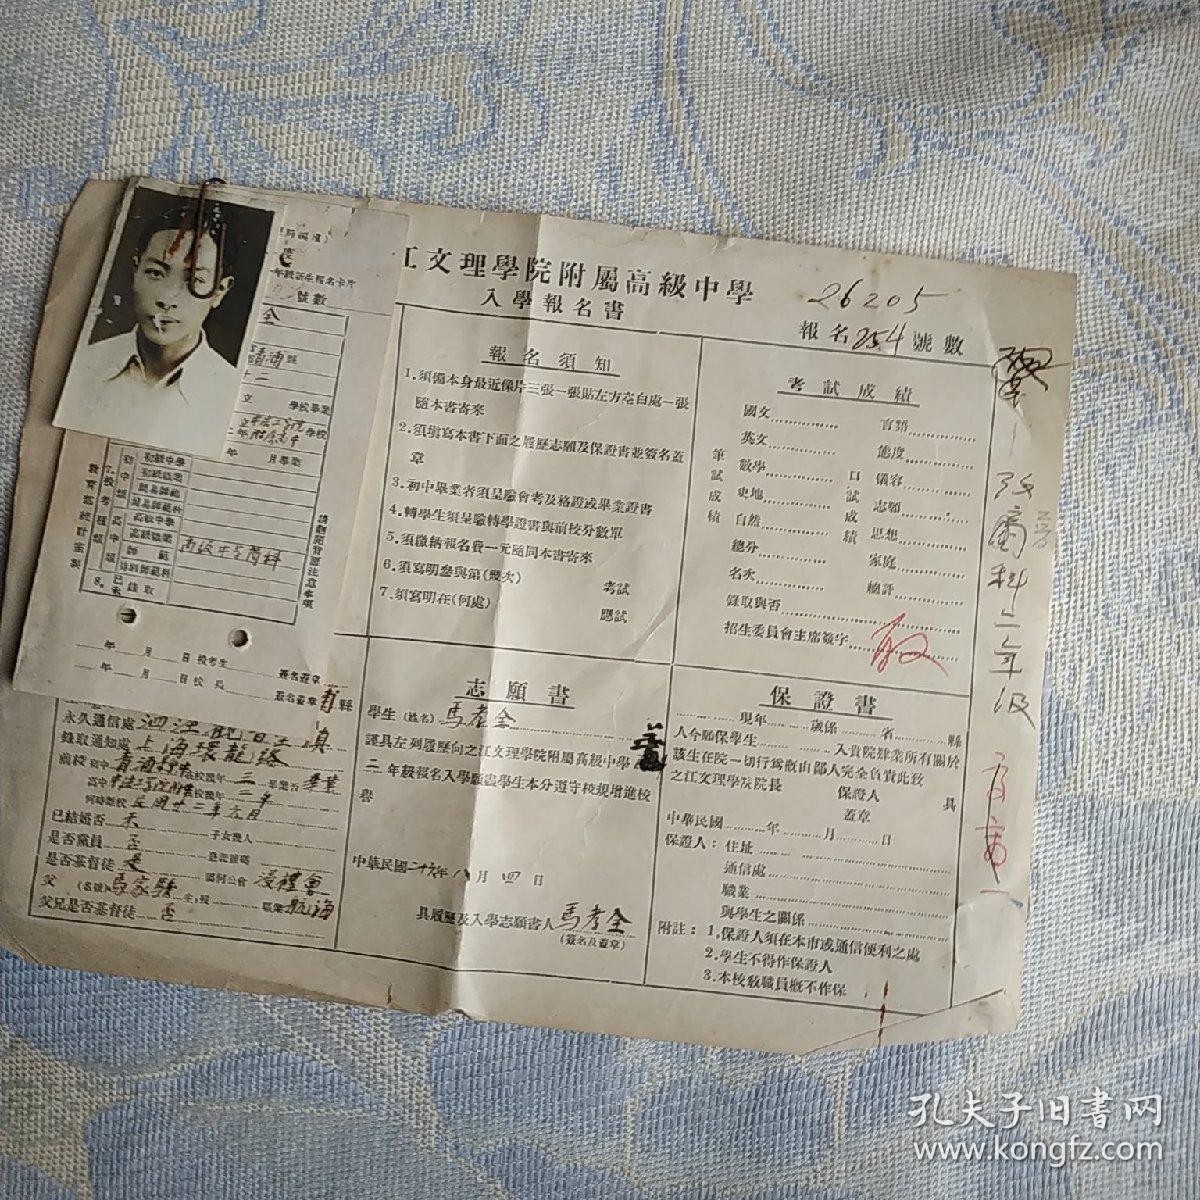 江文理學院附屬高級中學
入學報名書
26205
報名254號數
報名須知
1.須備本身最近像片三張一張貼左方空白處一張
隨本書寄來
2.須填寫本書下面之履歷志願及保證書並簽名蓋
章
3.初中畢業者須呈驗會考及格證或畢業證書
4.轉學生須呈驗轉學證書與前校分數單
5.須繳納報名費一元隨同本書寄來
6.須寫明參與第(幾次) 考試
7.須寫明在(何處) 應試
考試成績
筆試成績
國文
英文
數學
史地
自然
總分
名次
錄取與否
招生委員會主席簽字
口試成績
言語
態度
儀容
志願
思想
家庭
總評
取
改商科二年级
志願書
學生(姓名)馬孝全
謹具左列履歷向之江文理學院附屬高級中學
二年級報名入學願盡學生本分遵守校規增進校
譽
中華民國二十六年八月四日
具履歷及入學志願書人馬孝全
(簽名及蓋章)
保證書
現年 歲係 省 縣
人今願保學生 入貴院肄業所有關於
該生在院一切行為概由鄙人完全負責此致
之江文理學院院長 保證人 具
蓋章
中華民國 年 月 日
保證人：住址
通信處
職業
與學生之關係
附註：1.保證人須在本市或通信便利之處
2.學生不得作保證人
3.本校教職員概不作保
年級新生報名卡片
號數
全
立 學校畢業
年 月畢業
初級中學
高級中學
高級中學商科
8.已未錄取
請翻閱背面注意事項
年 月 日 投考生 簽名蓋章
年 月 日 校長 簽名蓋章
縣
永久通信處 泗涇
錄取通知處 上海環龍路
前校 初中
高中
何時離校 民國廿三年六月
已結婚否 未 子女幾人
是否黨員 否 黨證號碼
是否基督徒 是 屬何公會 浸禮會
父(名號)馬家駿 職業 航海
父兄是否基督徒 否
孔夫子旧书网
www.kongfz.com